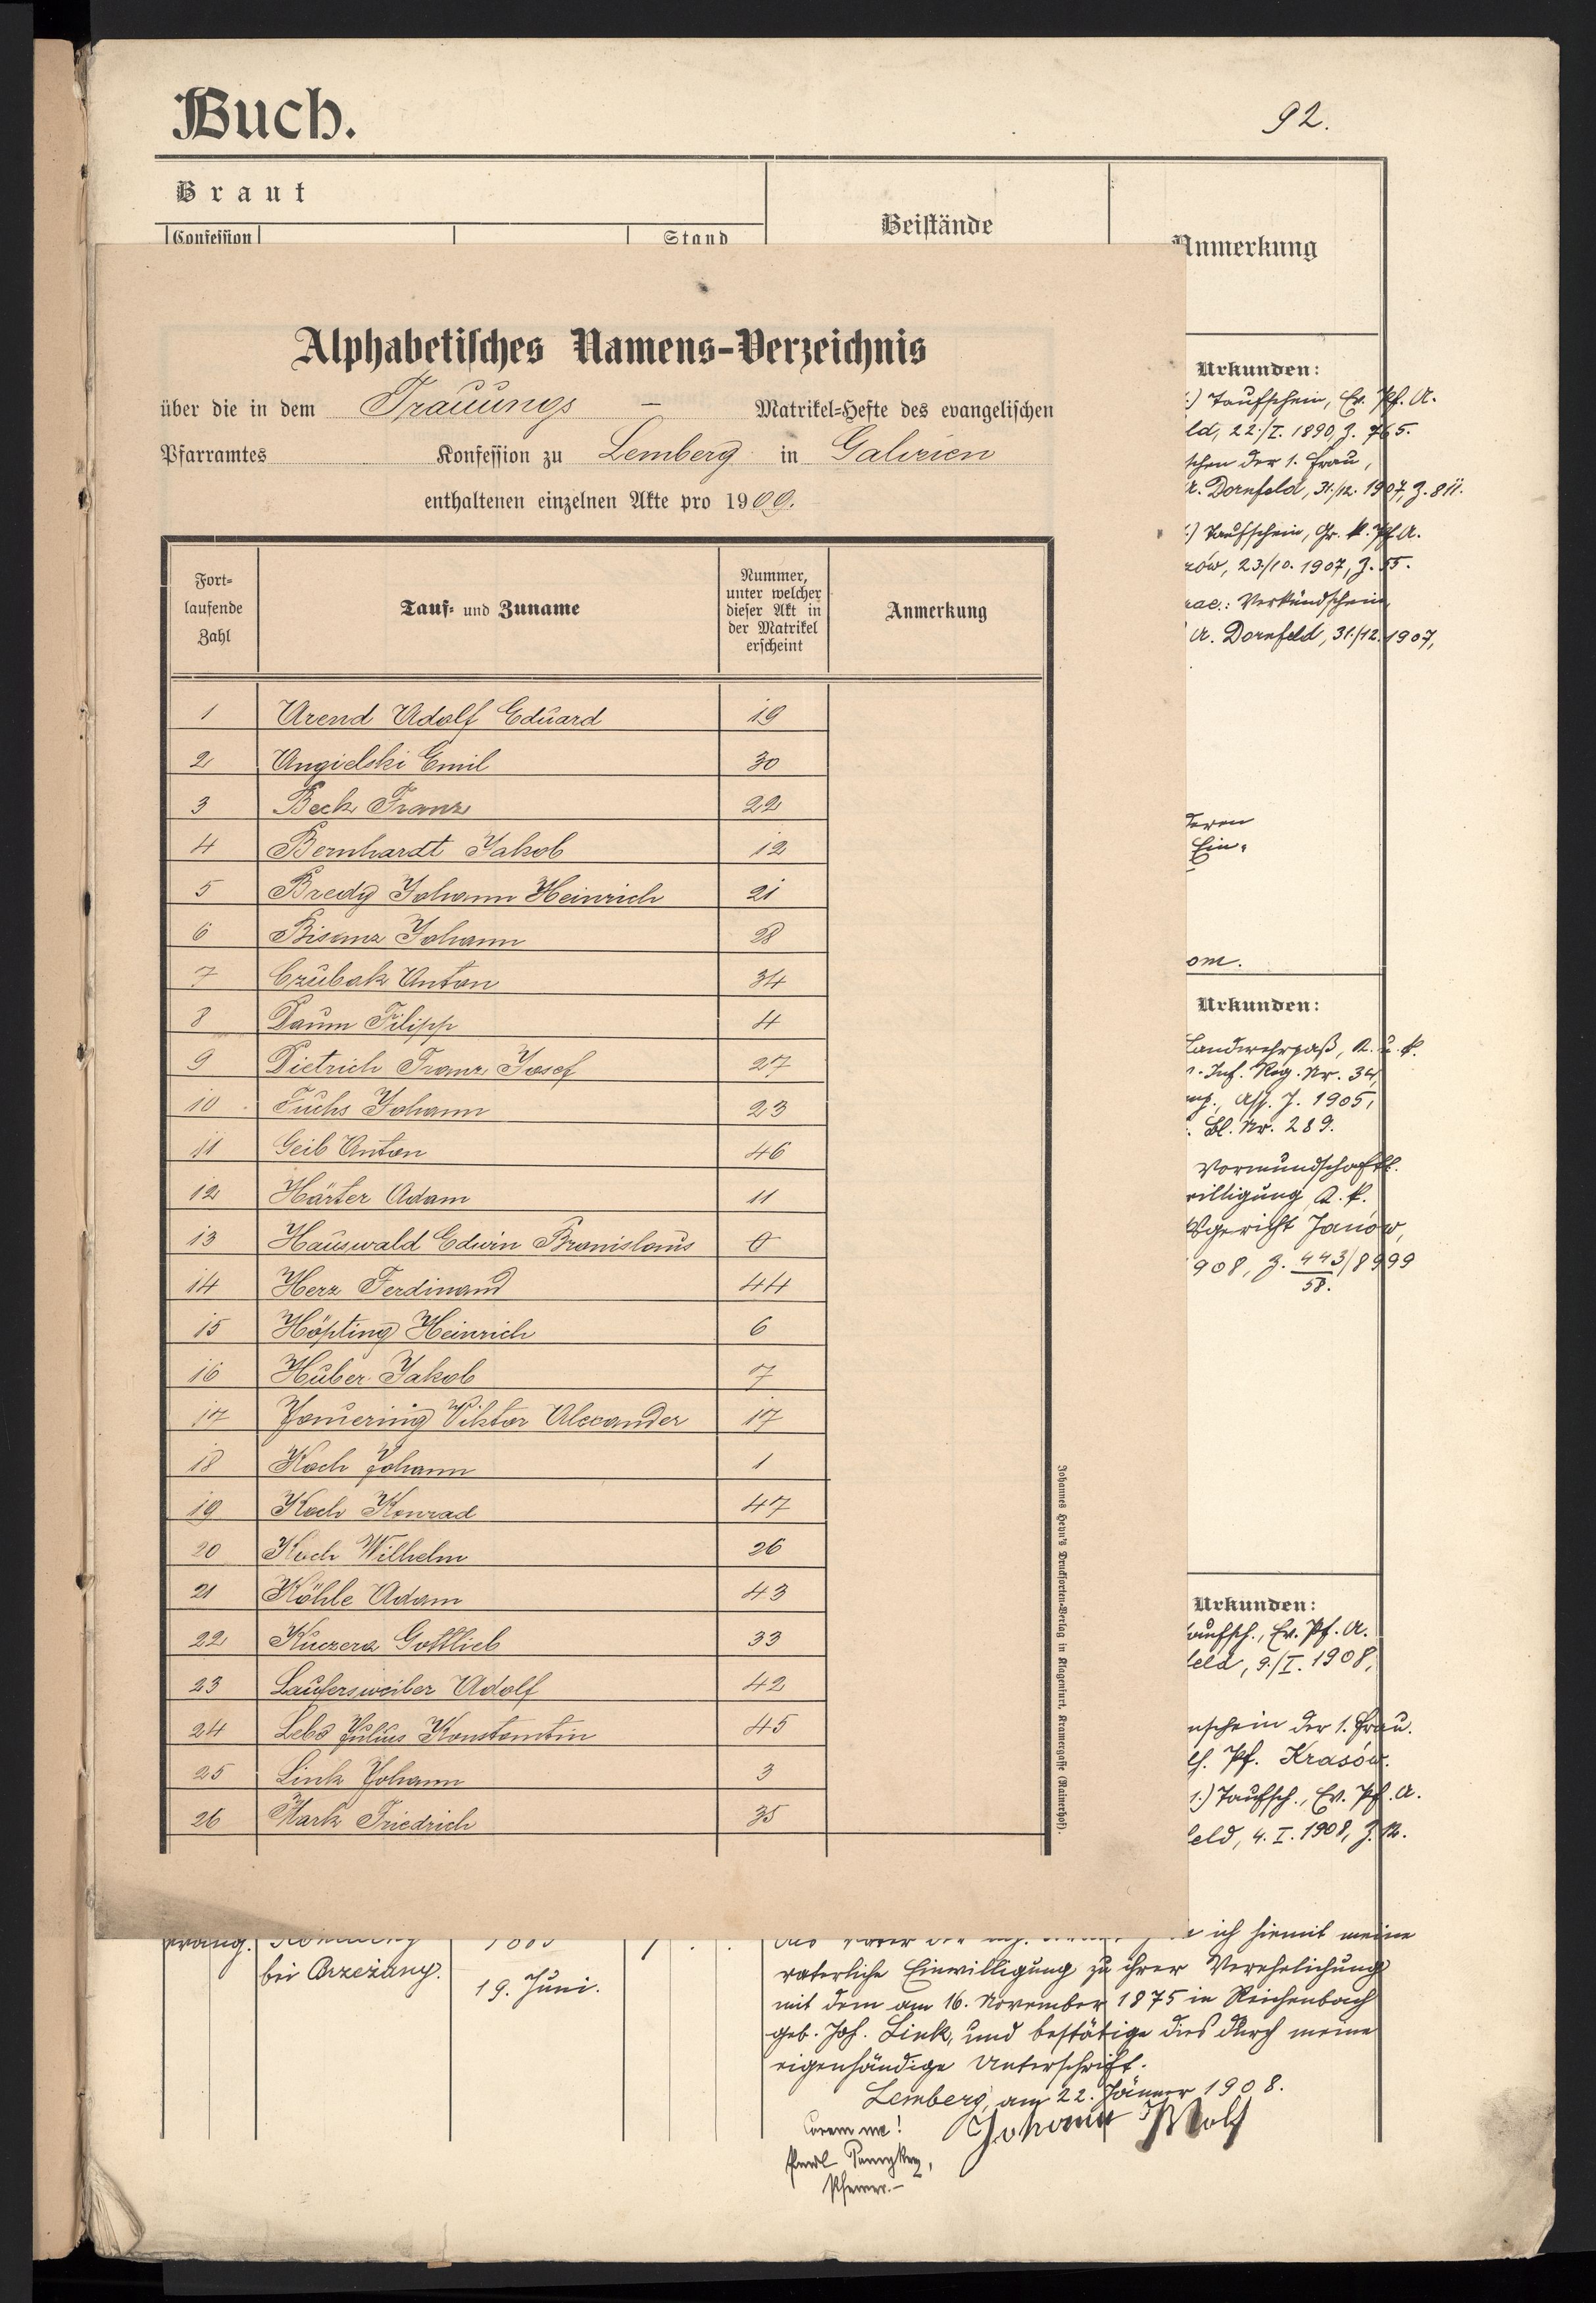 Buch.
92.
Braut
Beistände
Anmerkung
Confession
Stand
Alphabetisches Namens-Verzeichnis
über die in dem Trauungs — Matrikel-Hefte des evangelischen
Pfarramtes Konfession zu Lemberg in Galizien
enthaltenen einzelnen Akte pro 1909.
Fort-
laufende
Zahl
Tauf- und Zuname
Nummer,
unter welcher
dieser Akt in
der Matrikel
erscheint
Anmerkung
1 Arend Adolf Eduard 19
2 Angielski Emil 30
3 Beck Franz 22
4 Bernhardt Jakob 12
5 Bredy Johann Heinrich 21
6 Bisanz Johann 28
7 Czubak Anton 34
8 Daum Filipp 4
9 Dietrich Franz Josef 27
10 Fuchs Johann 23
11 Geib Anton 46
12 Härter Adam 11
13 Hauswald Edwin Bronislaus 0
14 Herz Ferdinand 44
15 Höpting Heinrich 6
16 Huber Jakob 7
17 Viktor Alexander 17
18 Koch Johann 1
19 Koch Konrad 47
20 Koch Wilhelm 26
21 Köhle Adam 43
22 Kuczera Gottlieb 33
23 Laufersweiler Adolf 42
24 Julius Konstantin 45
25 Link Johann 3
26 Mark Friedrich 35
Johannes Heyn's Drucksorten-Verlag in Klagenfurt, Kramergasse (Rainerhof).
Urkunden:
Taufschein, Ev. Pf. A.
ld, 22./I. 1890, Z. 765.
schen der 1. Frau,
A. Dornfeld, 31./12. 1907, Z. 811.
Taufschein, Gr. k. Pf. A.
zów, 23./10. 1907, Z. 55.
rae.: Verkündschein,
A. Dornfeld, 31./12. 1907,
deren
Ein-
om.
Urkunden:
Landwehrpaß, K. u. k.
Inf. Reg. Nr. 34,
Ass. J. 1905,
Bl. Nr. 289.
Vormundschaftl.
willigung K. k.
sgericht Janów,
908, Z. 443/8999
58.
Urkunden:
aufsch., Ev. Pf. A.
feld, 9./I. 1908,
nschein der 1. Frau.
Pf. Krasów.
1.) Taufsch., Ev. Pf. A.
feld, 4. I. 1908, Z. 12.
evang.
bei Brzeżany.
19. Juni.
ich hiemit meine
vaterliche Einwilligung zu ihrer Verehelichung
mit dem am 16. November 1875 in Reichenbach
geb. Joh. Link, und bestätige dies durch meine
eigenhändige Unterschrift.
Lemberg, am 22. Jänner 1908.
Coram me! Johann Wolf
Pfarrer.-